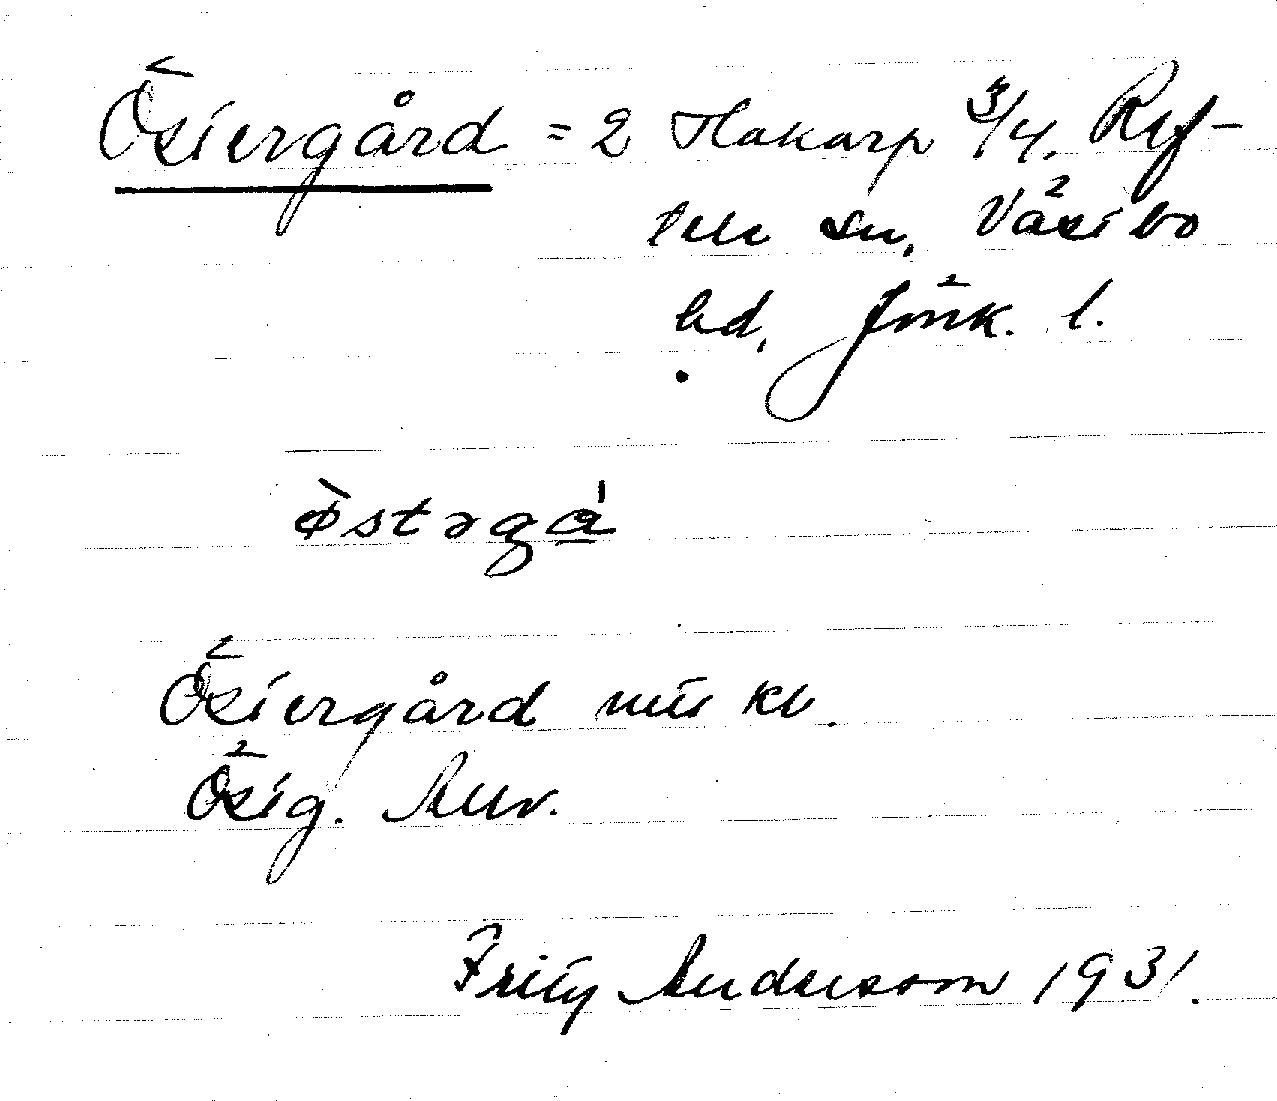 Östergård = 2 Hakarp 3/4. Ref-
tele sn, Västbo
hd, Jönk. l.
Östergård
Östg. Auv.
Fritz Andersson 1931.